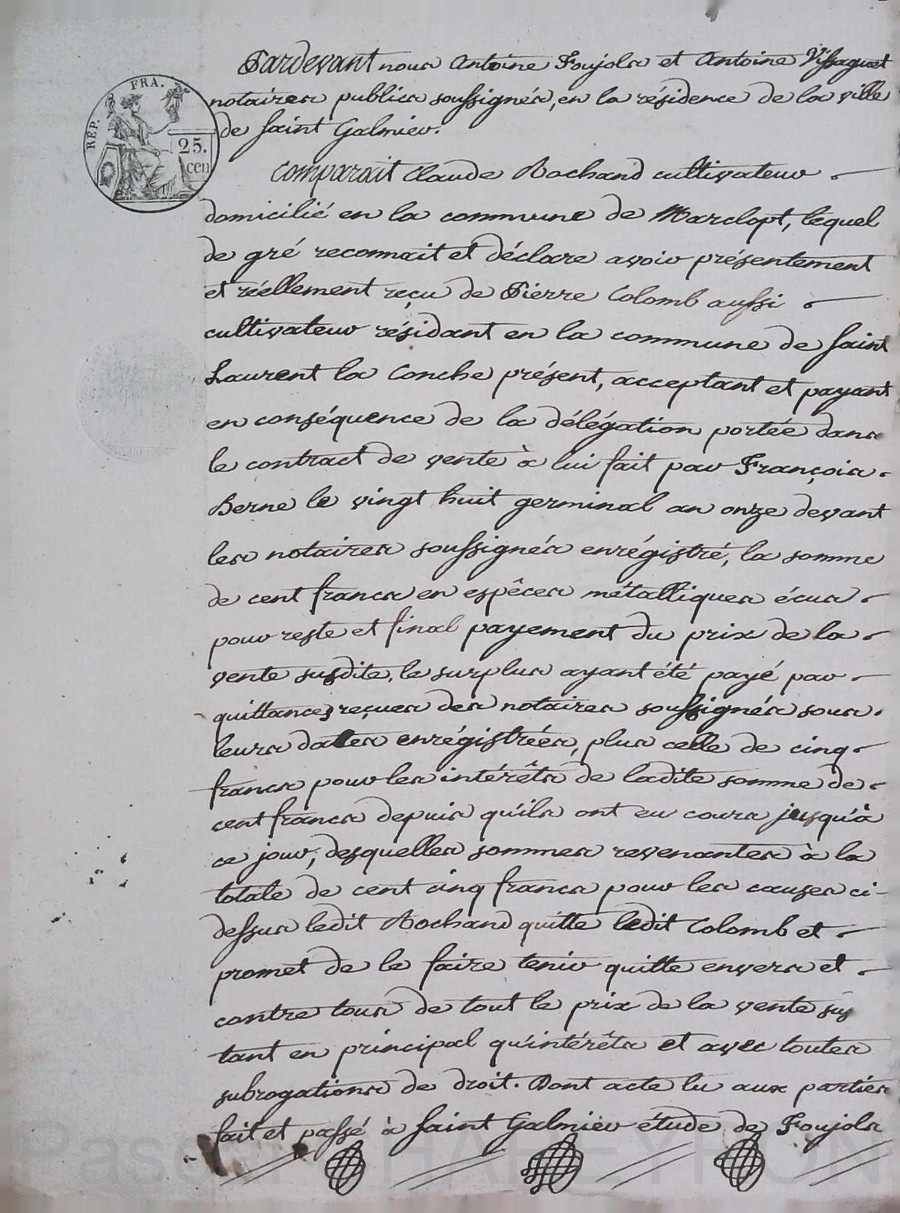 Pardevant nous Antoine Foujols et Antoine Vissaguet
notaires publics soussignés, en la résidence de la ville
de saint Galmier.
RÉP. FRA.
25.
cen
Comparait Claude Rochand cultivateur
domicilié en la commune de Marclopt, lequel
de gré reconnait et déclare avoir présentement
et réellement reçu de Pierre Colomb aussi
cultivateur résidant en la commune de saint
Laurent la Conche présent, acceptant et payant
en conséquence de la délégation portée dans
le contract de vente à lui fait par François
Berne le vingt huit germinal an onze devant
les notaires soussignés enrégistré, la somme
de cent francs en espêces métalliques écus
pour reste et final payement du prix de la
vente susdite, le surplus ayant été payé par
quittances reçues des notaires soussignés sous
leurs dattes enrégistrées, plus celle de cinq
francs pour les intérêts de ladite somme de
cent francs depuis qu'ils ont eu cours jusqu'à
ce jour, desquelles sommes revenantes à la
totale de cent cinq francs pour les causes ci-
dessus ledit Rochand quitte ledit Colomb et
promet de le faire tenir quitte envers et
contre tous de tout le prix de la vente sus
tant en principal qu'intérêts et avec toutes
subrogations de droit. Dont acte lu aux parties
fait et passé à saint Galmier étude de Foujols